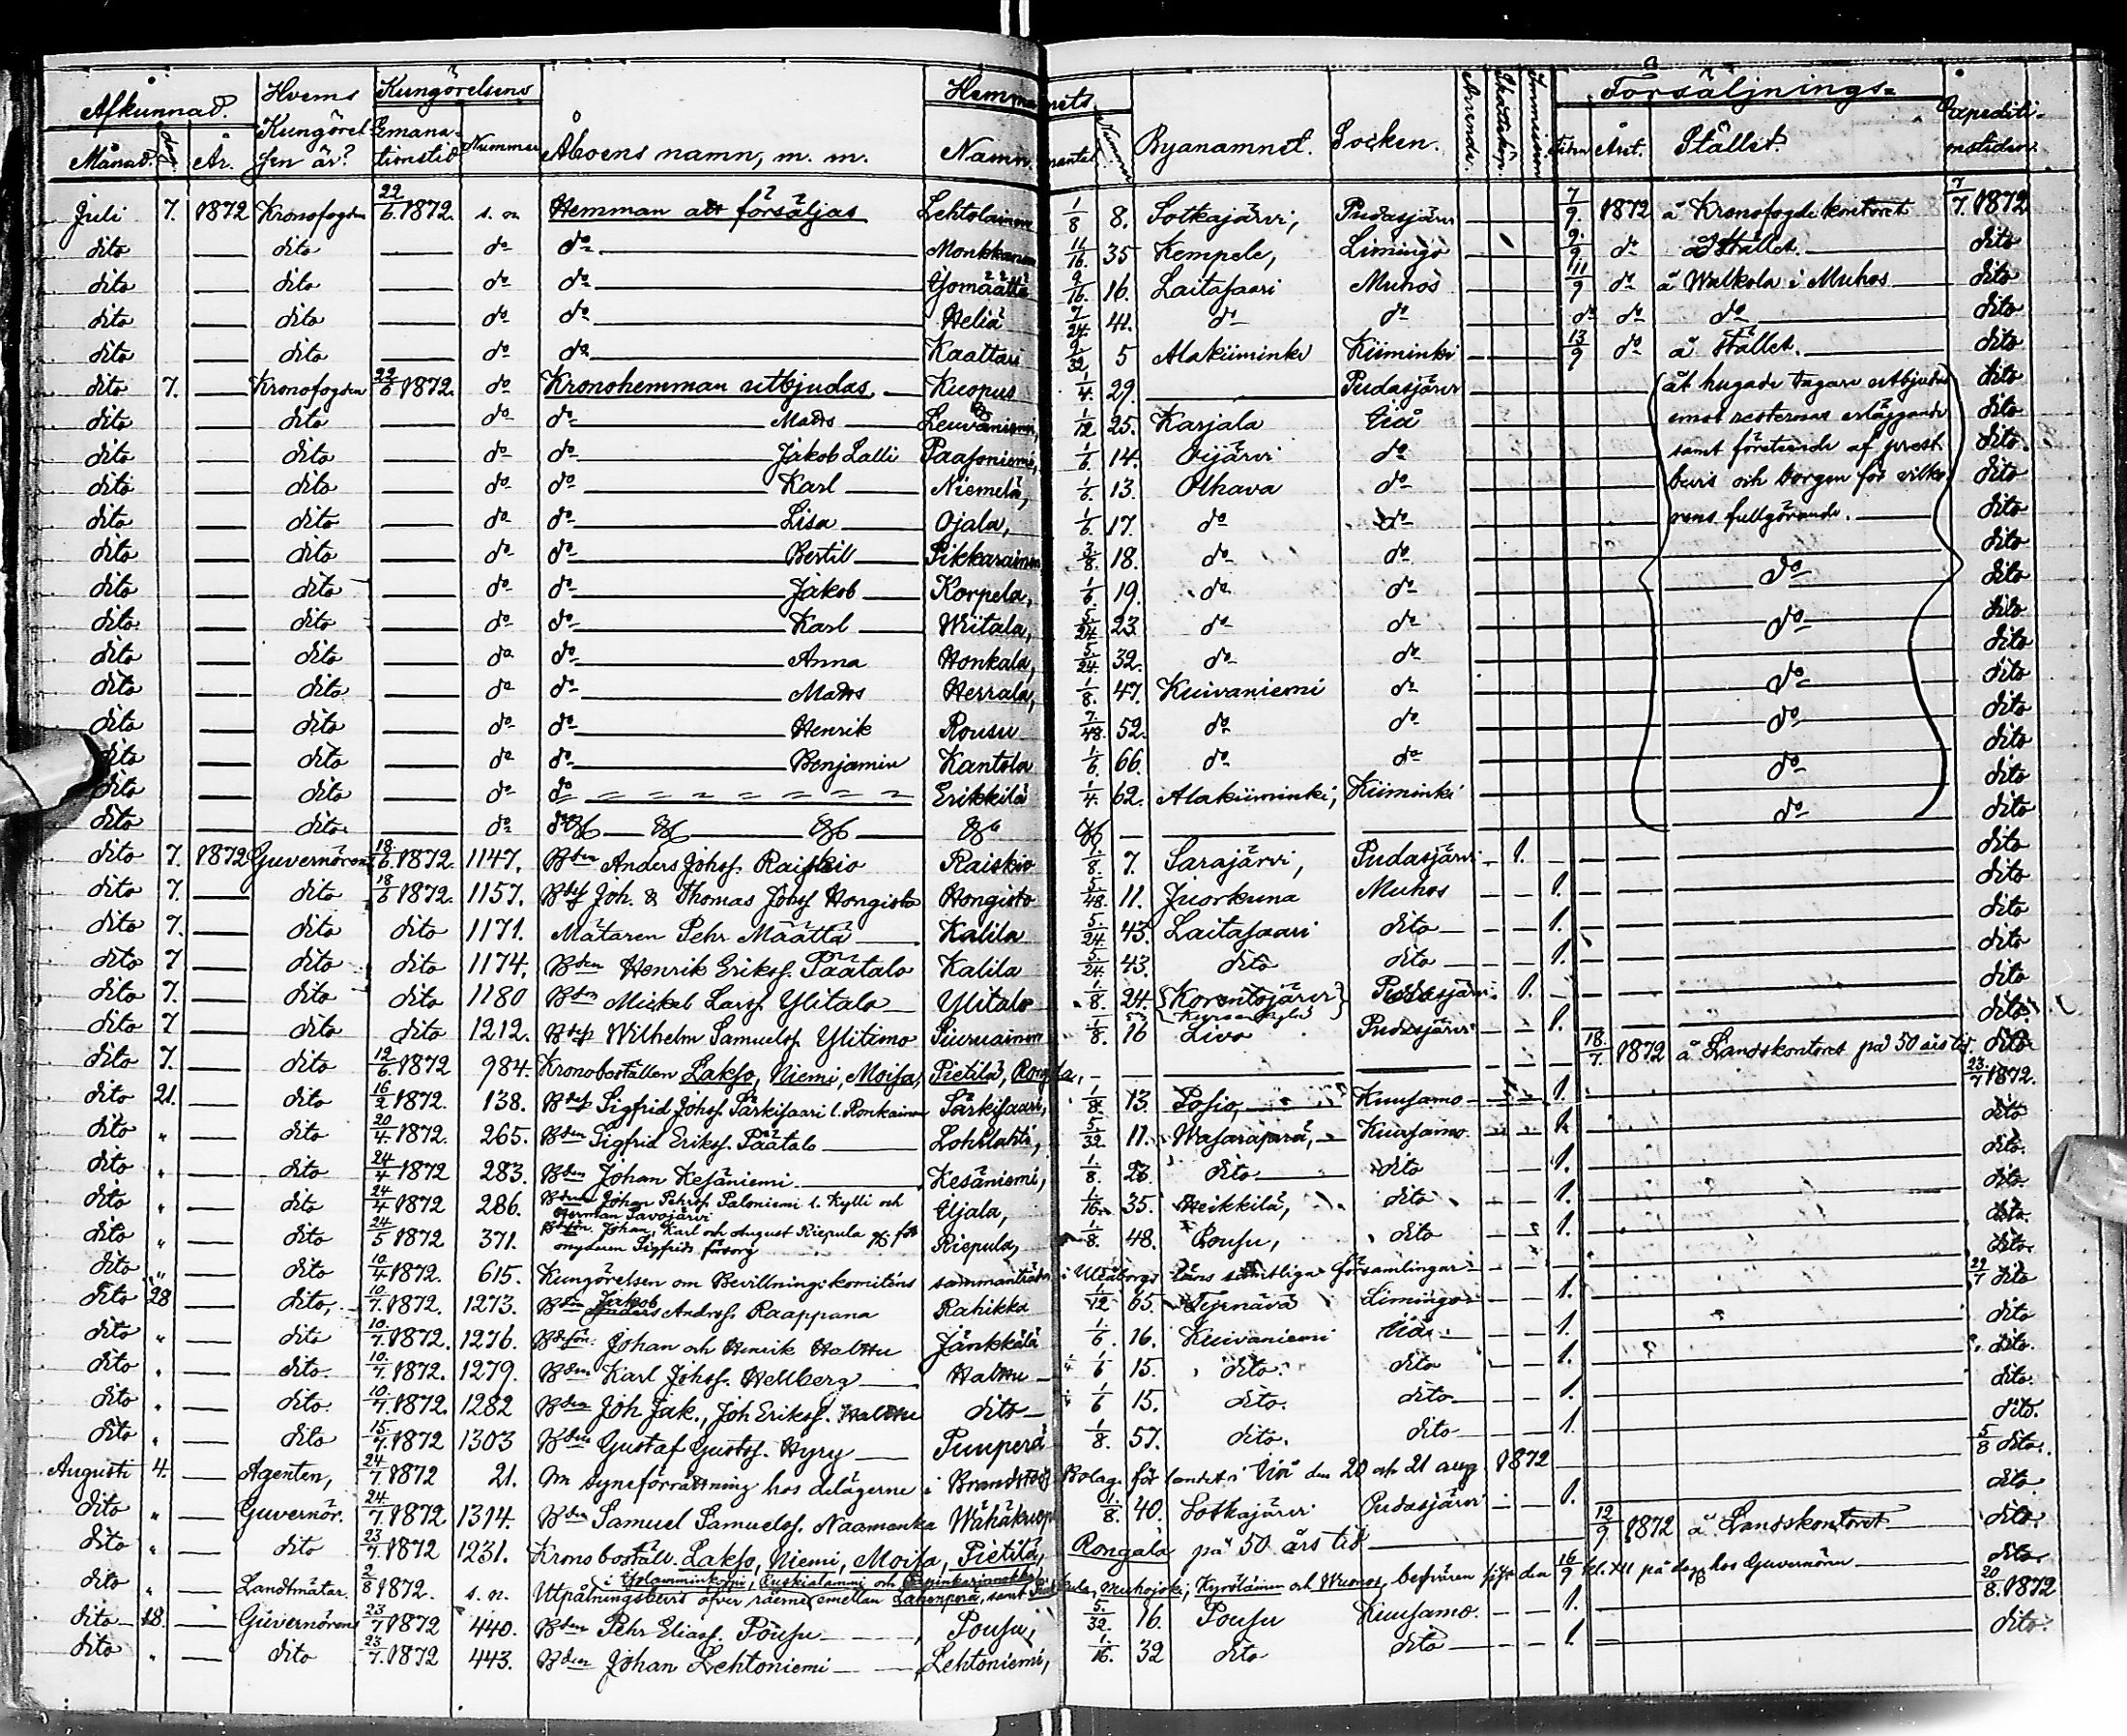 Afkunnad. Hvems Kungörelsens Hemmanets Försäljnings- Expediti-
Månad. År. Kungörel- Emana- Nummer Åboens namn, m. m. Namn. mantal Nummer Byanamnet. Socken. Arrende. Skatteköp. Immission. Året. Stället. onstiden.
sen är? tionstid
Juli 7. 1872 Kronofogden 22/6 1872. s. n. Hemman att försäljas Lehtolainen 1/8 8. Sotkajärvi, Pudasjärvi 7/9. 1872 å Kronofogdekontoret 7/7. 1872
dito dito do do Monkkanen 11/16. 35 Kempele, Limingo 9/9 do å Stället. dito
dito dito do do Yomäättä 9/16. 16. Laitasaari Muhos 11/9 do å Walkola i Muhos dito
dito dito do do Heliä 7/24. 41. do do do do do dito
dito dito do do Kaattari 9/32 5 Alakiiminki Kiiminki 13/9 do å Stället. dito
dito 7. Kronofogden 22/6 1872. do Kronohemman utbjudas. Kuopus 1/4. 29. Pudasjärvi åt hugade tagare utbjudes dito
dito dito do do Matts Leuvaniemi, 1/12 25. Karjala Iiå emot resternas erläggande dito
dito dito do do Jakob Lalli Paasoniemi, 1/6. 14. Oijärvi do samt företeende af dito
dito dito do do Karl Niemelä, 1/6. 13. Olhava do bevis och borgen för vilko- dito
dito dito do do Lisa Ojala, 1/6. 17. do do rens fullgörande. dito
dito dito do do Bertill Pikkarainen 3/8. 18. do do dito
dito dito do do Jakob Korpela, 1/6 19. do do do dito
dito dito do do Karl Wiitala, 5/24. 23. do do do dito
dito dito do do Anna Honkala, 5/24. 32. do do dito
dito dito do do Matts Herrala, 1/8. 47. Kuivaniemi do do dito
dito dito do do Henrik Rousu 7/48. 52. do do do dito
dito dito do do Benjamin Kantola 1/6. 66. do do do dito
dito dito do do Erikkilä 1/4. 62. Alakiiminki, Kiiminki do dito
dito dito do do dito
dito 7. 1872 Guvernören 18/6. 1872. 1147. Bden Anders Johss. Raiskio Raiskio 1/8. 7. Sarajärvi, Pudasjärvi 1. dito
dito 7. dito 18/6 1872. 1157. Bdes Joh. & Thomas Johss Hongisto Hongisto 5/48. 11. Juorkuna Muhos 1. dito
dito 7. dito dito 1171. Mätaren Pehr Määttä Kalila 5/24. 43. Laitasaari dito 1. dito
dito 7 dito dito 1174. Bden Henrik Erikss. Päätalo Kalila 5/24. 43. dito dito 1. dito
dito 7. dito dito 1180 Bden Mickel Larss. Ylitalo Ylitalo 1/8. 24. Korentojärvi Pudasjärvi 1. dito
dito 7 dito dito 1212. Bdes Wilhelm Samuelss. Ylitimo Siuruainen 1/8. 16 Livo Pudasjärvi 1. dito
dito 7. dito 12/6. 1872 984. Kronoboställen Lakso, Niemi, Moisa, Pietilä, Rongala, 18/7. 1872 å Landskontoret på 50 års tid. dito
dito 21. dito 16/2 1872. 138. Bdes Sigfrid Johss. Särkisaari l. Ronkainen Särkisaari, 1/8. 13. Posio, Kuusamo 1. 23/7 1872.
dito " dito 20/4. 1872. 265. Bden Sigfrid Erikss. Päätalo Lohilahti, 5/32 11. Wasaraperä, Kuusamo 1. dito
dito " dito 24/4 1872 283. Bden Johan Kesäniemi Kesäniemi, 1/8. 23. dito dito 1. dito.
dito " dito 24/4 1872 286. Bden Johan Pehrss. Paloniemi l. Kylli och
Herman Savojärvi Ojala, 1/16. 35. Heikkilä, dito 1. dito.
dito " dito 24/5 1872 371. Bdesön. Johan, Karl och August Riepula för
omyderen Sigfrids försorg Riepula, 1/8. 48. Pousu, dito 1. dito.
dito " dito 10/4 1872. 615. Kungörelsen om Bevillningskomiténs sammanträden i Uleåborgs läns samtliga församlingar dito
dito 28 dito, 10/7. 1872. 1273. Bden Jakob Anderss. Raappana Rahikka 1/12 65. Tyrnävä Limingo 1. 29/7 dito
dito " dito 10/7. 1872. 1276. Bdesön. Johan och Henrik Halttu Jänkkälä 1/6. 16. Kuivaniemi Iiå. 1. dito
dito " dito. 10/7. 1872. 1279. Bden Karl Johss. Hellberg Halttu 1/6 15. dito. dito 1. dito.
dito " dito. 10/7. 1872. 1282 Bden Joh Jak., Joh Erikss. Halttu dito 1/6 15. dito. dito. 1. dito.
dito " dito 15/7. 1872 1303 Bden Gustaf Gustss. Hyry Puuperä 1/8. 57. dito. dito 1. dito.
Augusti 4. Agenten, 24/7. 1872 21. Om syneförrättning hos delägerne i Brandstods Bolag. för landet i Iiå den 20 och 21 aug 1872 5/8 dito.
dito " Guvernör. 24/7. 1872 1314. Bden Samuel Samuelss. Naamanka Wähäkuop 1/8. 40. Sotkajärvi Pudasjärvi 1. dito.
dito " dito 23/7. 1872 1231. Kronoboställ. Lakso, Niemi, Moisa, Pietilä, Rongala på 50 års tid 12/9 1872 å Landskontoret dito
dito " Landtmätar. 2/8 1872. s. n. Utpålningsbevis öfver råerne emellan Lahenperä, samt Kyröläinen och Wuonos, besvären den 16/9 kl. XII på dag hos Guvernören dito.
dito 18. Guvernören 23/7 1872 440. Bden Pehr Eliass. Pousu Pousu, 5/32. 16. Pousu Kuusamo. 1. 20/8. 1872
dito " dito 23/7. 1872 443. Bden Johan Lehtoniemi Lehtoniemi, 1/16. 32 dito dito 1. dito.